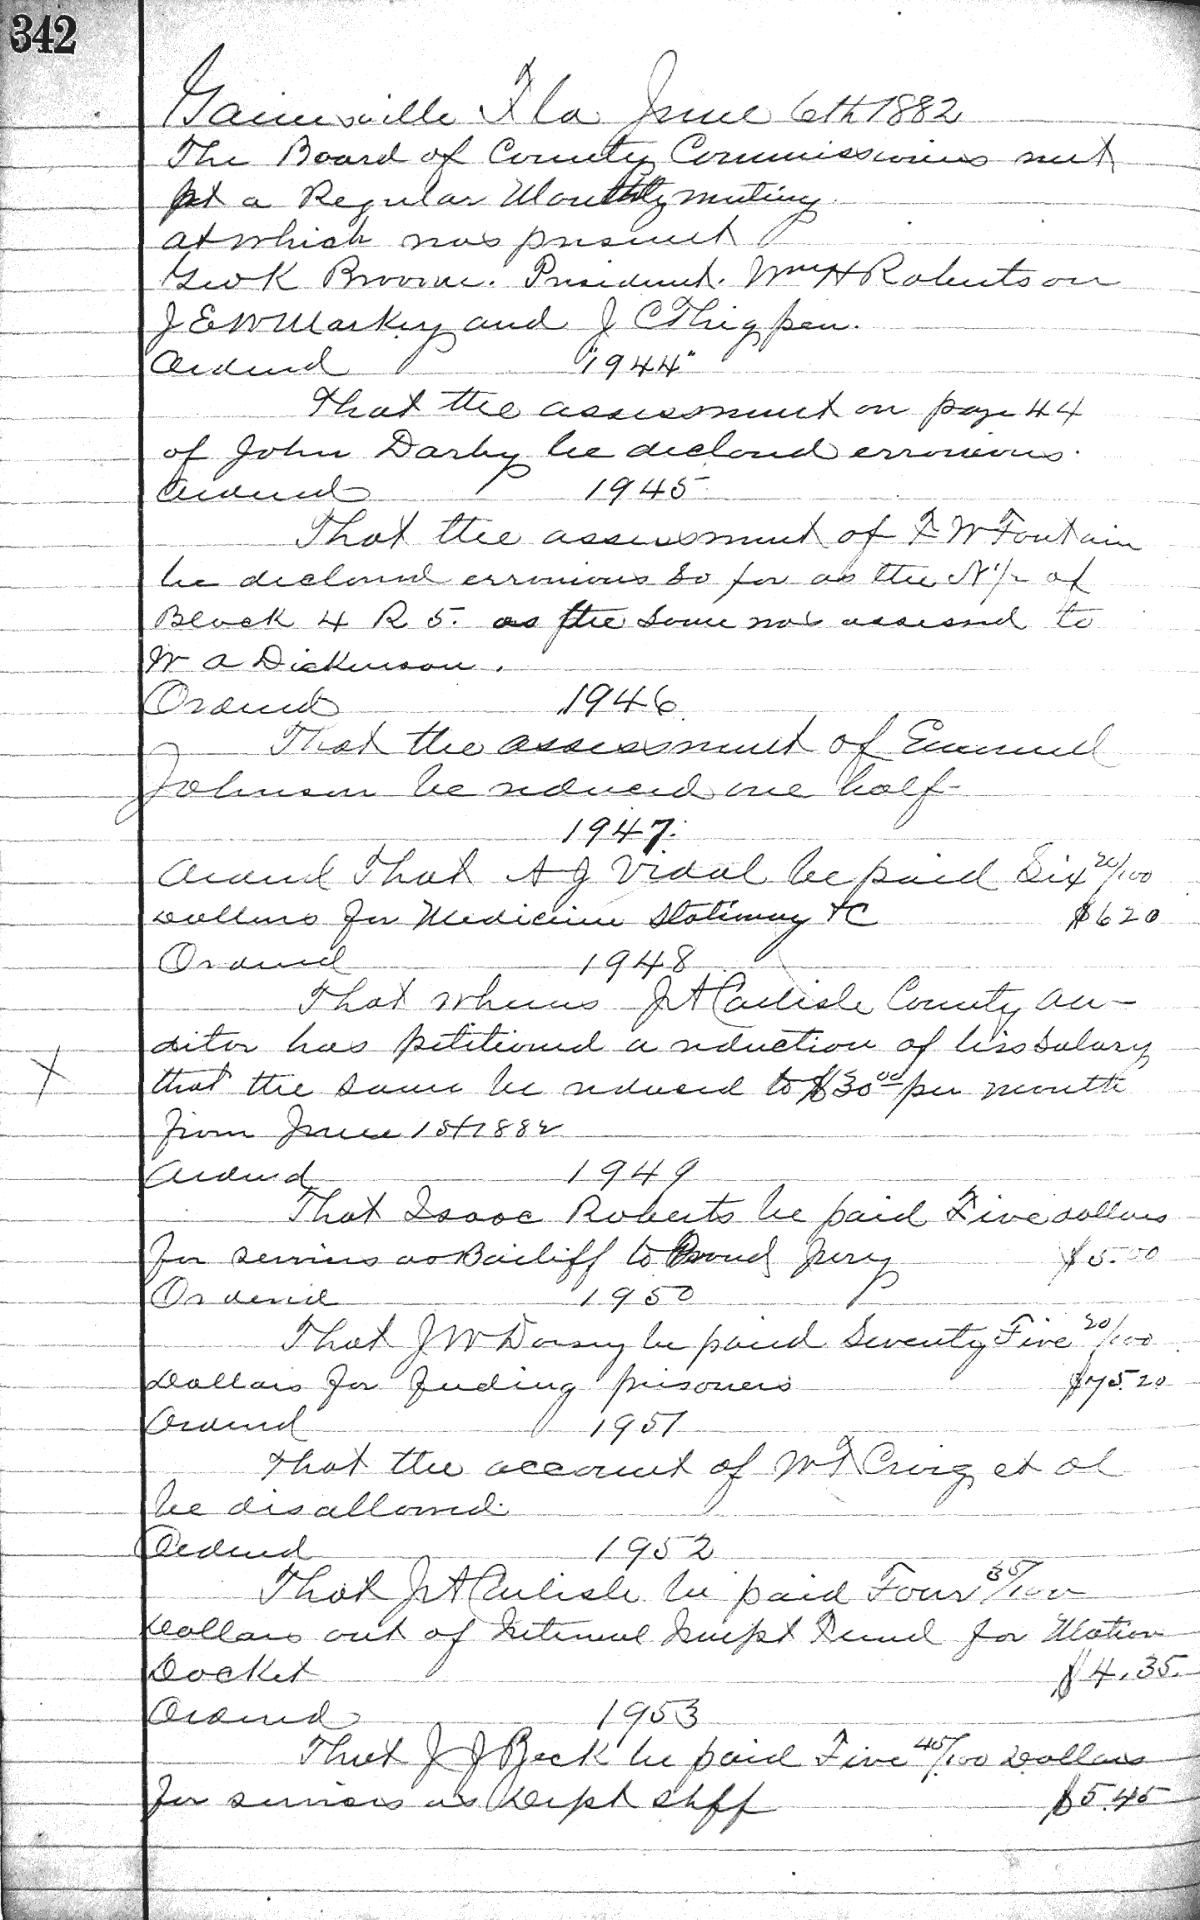 342
Gainesville Fla June 6th 1882
The Board of County Commissioners met
at a Regular Monthly meeting
at which was present
Geo K Broome. President. Wm H Robertson
J E W Markey and J C Thigpen.
Ordered "1944"
That the assessment on page 44
of John Darby be declared erronious.
Ordered 1945
That the assessment of F W Fontain
be declared erronious so far as the N 1/2 of
Block 4 R 5. as the same was assessed to
W A Dickinson.
Ordered 1946
That the assessment of Emanuel
Johnson be reduced one half-
1947.
Ordered That A J Vidal be paid Six 20/100
Dollars for Medicine Stationary &C $6 20
Ordered 1948
That whereas J A Carlisle County Au-
ditor has petitioned a reduction of his salary
X that the same be reduced to $30 00 per month
from June 1st 1882
Ordered 1949
That Isaac Roberts be paid Five dollars
for services as Bailiff to Grand Jury $5.00
Ordered 1950
That J W Dorsey be paid Seventy Five 20/100
Dollars for feeding prisoners $75.20
Ordered 1951
That the account of Craig et al
be disallowed.
Ordered 1952
That J A Carlisle be paid Four 35/100
Dollars out of Fund for Motion
Docket $4.35.
Ordered 1953
That J J Beck be paid Five 45/100 Dollars
for services as Dept Shff $5.45